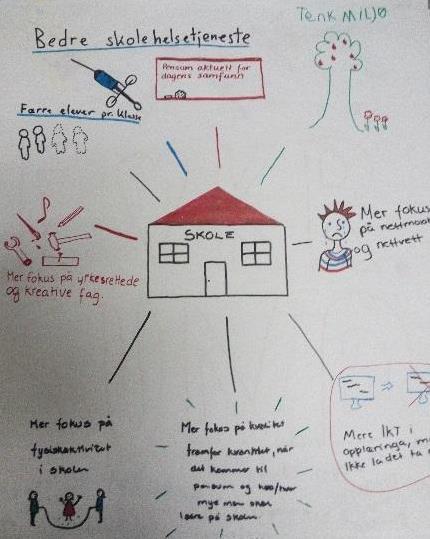 Tenk MILJØ
Bedre skolehelsetjeneste
Pensum aktuelt for
dagens samfunn
Færre elever pr. klasse
SKOLE
Mer fokus
på nettmobb
og nettvett
Mer fokus på yrkesrettede
og kreative fag.
Mer fokus på
fysiskaktivitet
i skolen
Mer fokus på kvalitet
framfor kvantitet, når
det kommer til
pensum og
mye man skal
lære på skolen
Mere IKT i
opplæringa, m
Ikke la det ta